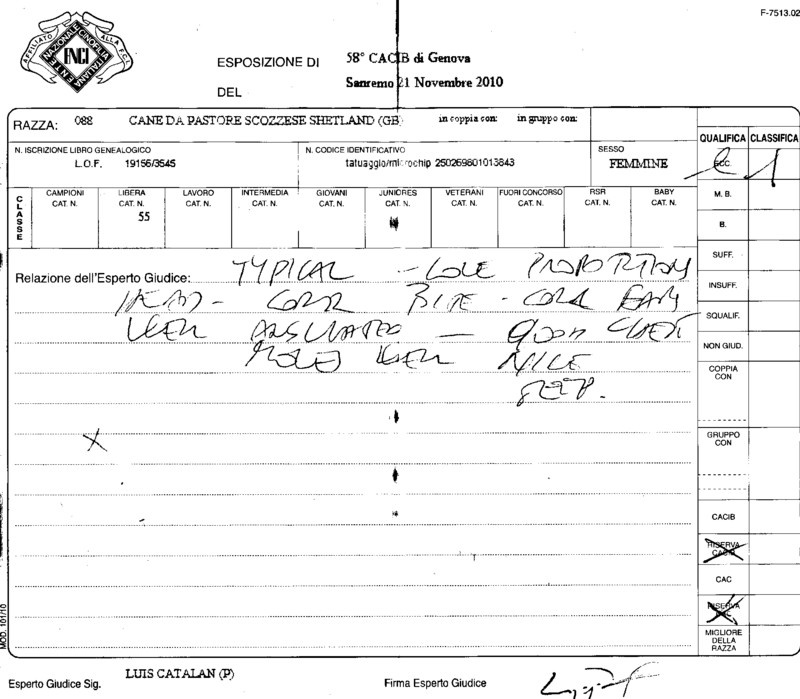 F-7513.02
AFFILIATO ALLA F.C.I.
ENTE NAZIONALE CINOFILIA ITALIANA
ENCI
ESPOSIZIONE DI 58° CACIB di Genova
DEL Sanremo 21 Novembre 2010
RAZZA: 088 CANE DA PASTORE SCOZZESE SHETLAND (GB) in coppia con: in gruppo con:
QUALIFICA CLASSIFICA
N. ISCRIZIONE LIBRO GENEALOGICO N. CODICE IDENTIFICATIVO SESSO
L.O.F. 19156/3545 tatuaggio/microchip 250269801013843 FEMMINE
ECC. 1
CLASSE
CAMPIONI CAT. N.
LIBERA CAT. N. 55
LAVORO CAT. N.
INTERMEDIA CAT. N.
GIOVANI CAT. N.
JUNIORES CAT. N.
VETERANI CAT. N.
FUORI CONCORSO CAT. N.
RSR CAT. N.
BABY CAT. N.
M. B.
B.
SUFF.
INSUFF.
SQUALIF.
NON GIUD.
COPPIA CON
GRUPPO CON
CACIB
RISERVA CACIB
CAC
RISERVA CAC
MIGLIORE DELLA RAZZA
Relazione dell'Esperto Giudice: TYPICAL -
HEAD - BITE -
- GOOD CHEST
MOVES NICE
MOD. 101/10
Esperto Giudice Sig. LUIS CATALAN (P) Firma Esperto Giudice